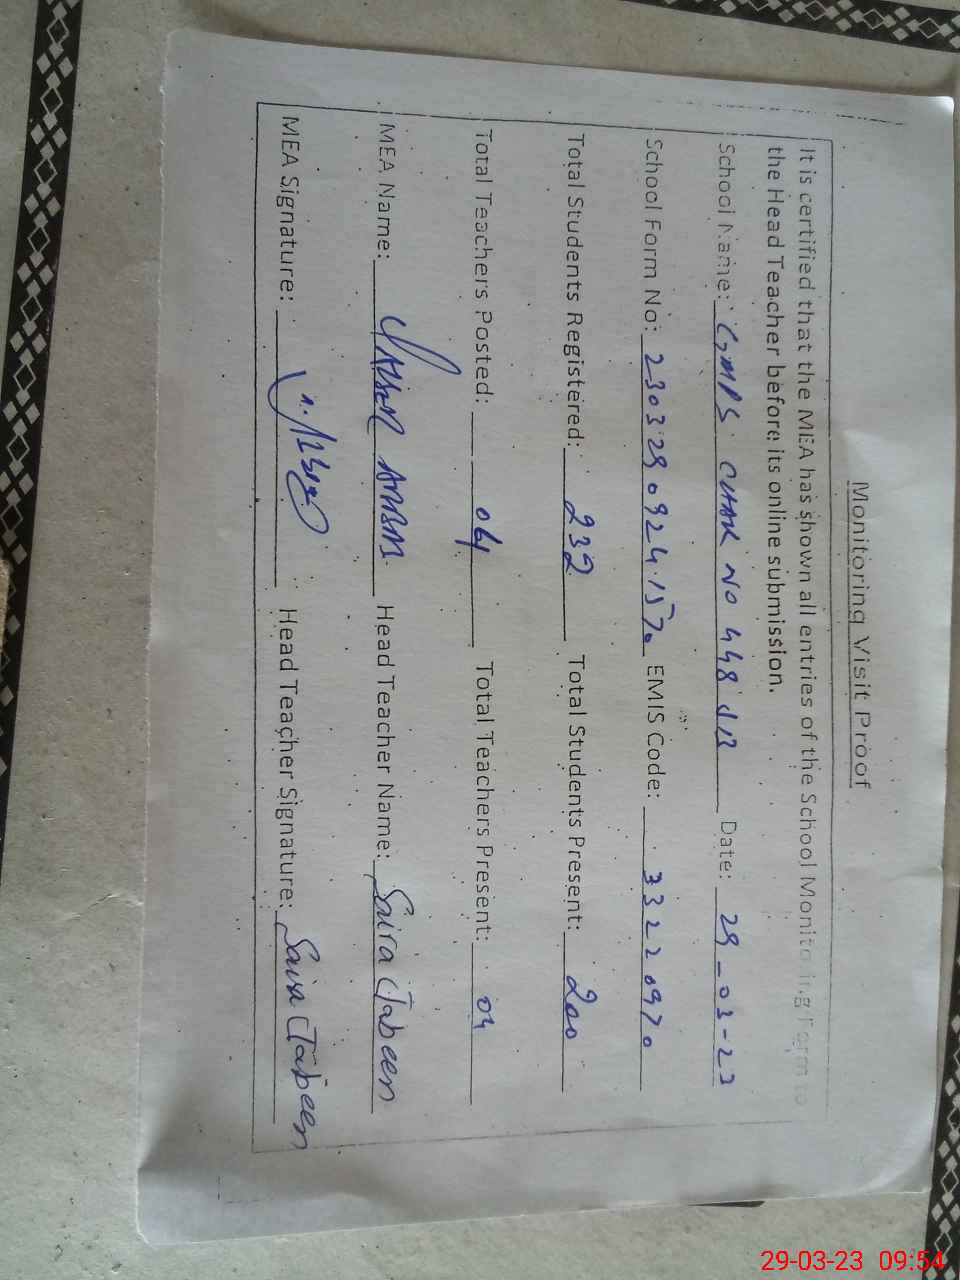 Monitoring Visit Proof
It is certified that the MEA has shown all entries of the School Monitoring Form to
the Head Teacher before its online submission.
School Name: GMPS CHAK NO 448 JB Date: 29-03-23
School Form No: EMIS Code: 33220970
Total Students Registered: 232 Total Students Present: 200
Total Teachers Posted: 04 Total Teachers Present: 04
MEA Name: Head Teacher Name: Saira Tabeen
MEA Signature: Head Teacher Signature: Saira Tabeen
29-03-23 09:54